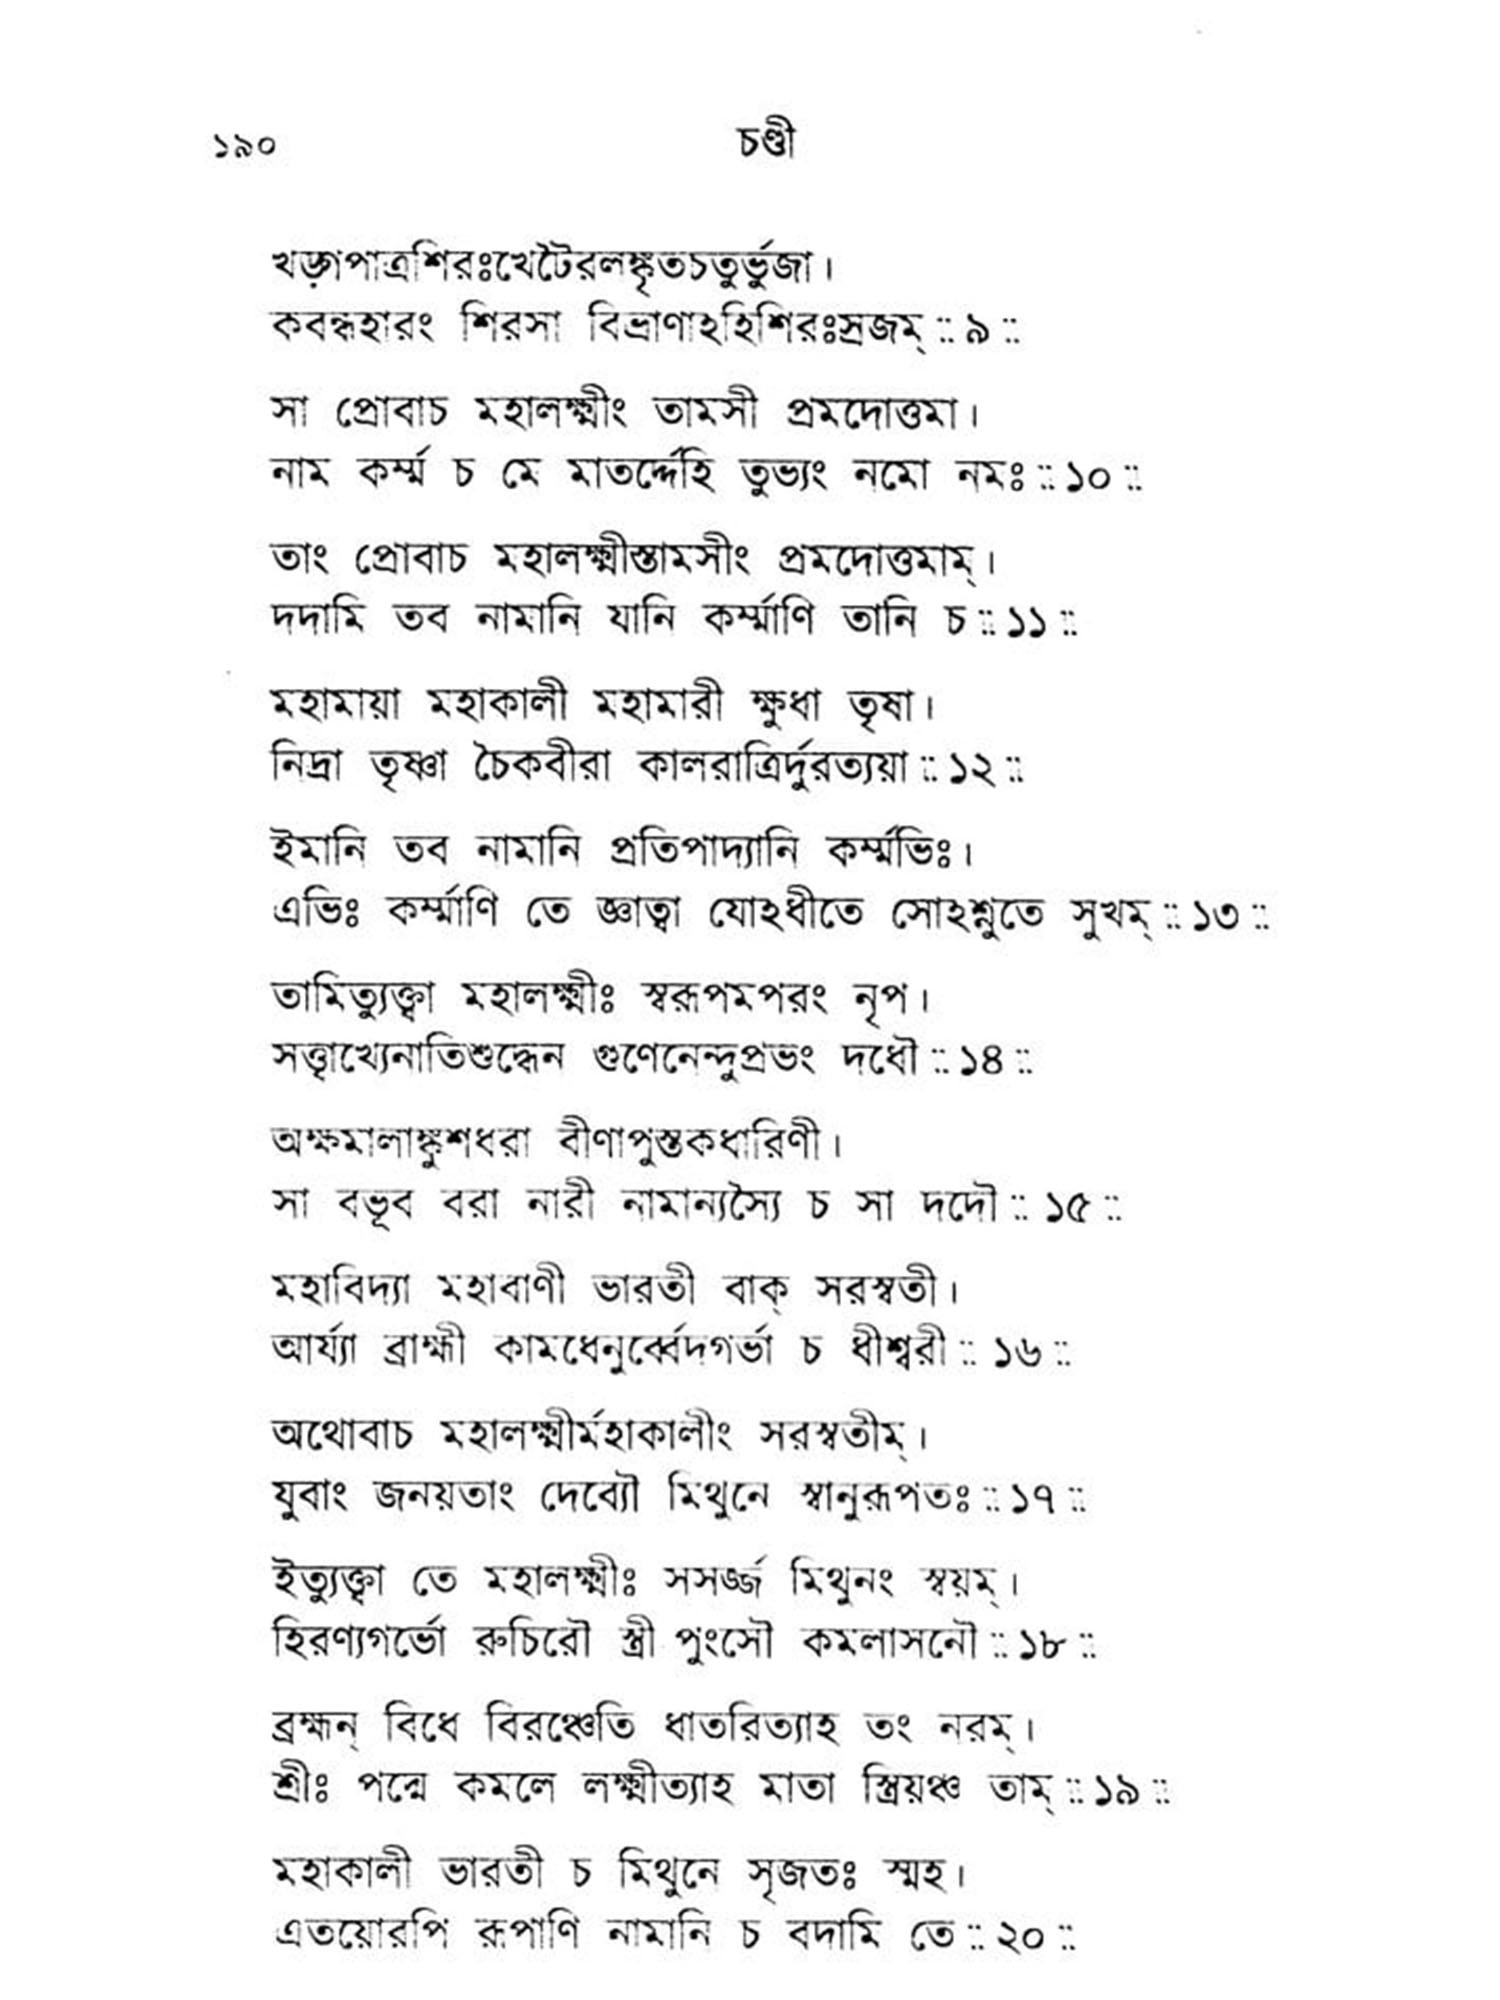 ১৯০
চণ্ডী
খড়্গপাত্রশিরঃখেটৈরলঙ্কৃতচতুর্ভুজা।
কবন্ধহারং শিরসা বিভ্রাণাঽহিশিরঃস্রজম্ ॥ ৯ ॥
সা প্রোবাচ মহালক্ষ্মীং তামসী প্রমদোত্তমা।
নাম কর্ম্ম চ মে মাতর্দ্দেহি তুভ্যং নমো নমঃ ॥ ১০ ॥
তাং প্রোবাচ মহালক্ষ্মীস্তামসীং প্রমদোত্তমাম্।
দদামি তব নামানি যানি কর্ম্মাণি তানি চ ॥ ১১ ॥
মহামায়া মহাকালী মহামারী ক্ষুধা তৃষা।
নিদ্রা তৃষ্ণা চৈকবীরা কালরাত্রির্দুরত্যয়া ॥ ১২ ॥
ইমানি তব নামানি প্রতিপাদ্যানি কর্ম্মভিঃ।
এভিঃ কর্ম্মাণি তে জ্ঞাত্বা যোঽধীতে সোঽশ্নুতে সুখম্ ॥ ১৩ ॥
তামিত্যুক্ত্বা মহালক্ষ্মীঃ স্বরূপমপরং নৃপ।
সত্ত্বাখ্যেনাতিশুদ্ধেন গুণেনেন্দুপ্রভং দধৌ ॥ ১৪ ॥
অক্ষমালাঙ্কুশধরা বীণাপুস্তকধারিণী।
সা বভূব বরা নারী নামান্যস্যৈ চ সা দদৌ ॥ ১৫ ॥
মহাবিদ্যা মহাবাণী ভারতী বাক্ সরস্বতী।
আর্য্যা ব্রাহ্মী কামধেনুর্ব্বেদগর্ভা চ ধীশ্বরী ॥ ১৬ ॥
অথোবাচ মহালক্ষ্মীর্মহাকালীং সরস্বতীম্।
যুবাং জনয়তাং দেব্যৌ মিথুনে স্বানুরূপতঃ ॥ ১৭ ॥
ইত্যুক্ত্বা তে মহালক্ষ্মীঃ সসর্জ্জ মিথুনং স্বয়ম্।
হিরণ্যগর্ভো রুচিরৌ স্ত্রী পুংসৌ কমলাসনৌ ॥ ১৮ ॥
ব্রহ্মন্ বিধে বিরঞ্চেতি ধাতরিত্যাহ তং নরম্।
শ্রীঃ পদ্মে কমলে লক্ষ্মীত্যাহ মাতা স্ত্রিয়ঞ্চ তাম্ ॥ ১৯ ॥
মহাকালী ভারতী চ মিথুনে সৃজতঃ স্মহ।
এতয়োরপি রূপাণি নামানি চ বদামি তে ॥ ২০ ॥